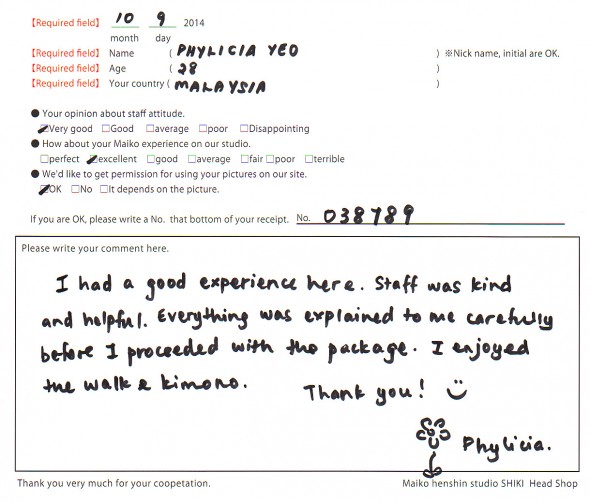 【Required field】 10 9 2014
month day
【Required field】 Name ( PHYLICIA YEO ) ※Nick name, initial are OK.
【Required field】 Age ( 28 )
【Required field】 Your country ( MALAYSIA )
● Your opinion about staff attitude.
☑Very good □Good □average □poor □Disappointing
● How about your Maiko experience on our studio.
□perfect ☑excellent □good □average □fair □poor □terrible
● We'd like to get permission for using your pictures on our site.
☑OK □No □It depends on the picture.
If you are OK, please write a No. that bottom of your receipt. No. 038789
Please write your comment here.
I had a good experience here. Staff was kind
and helpful. Everything was explained to me carefully
before I proceeded with the package. I enjoyed
the walk & kimono. Thank you! ☺
Phylicia.
Thank you very much for your coopetation. Maiko henshin studio SHIKI Head Shop